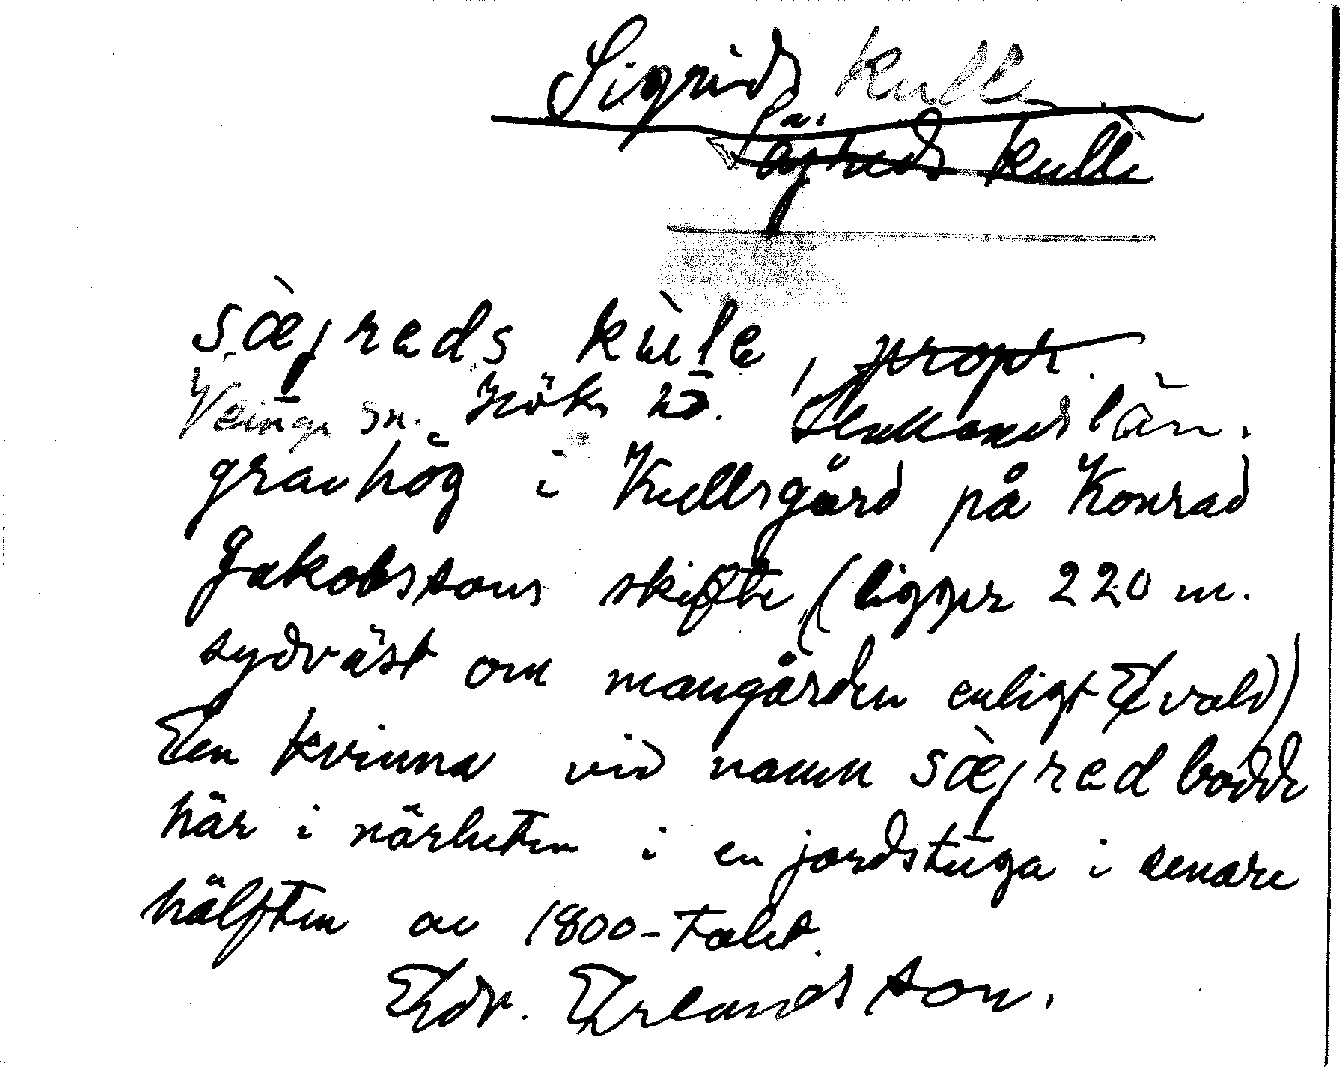 Sigrids kulle
Sägreds kulle
sæ̀jreds kùle, propr.
Veinge sn. Höks hd. Hallands län.
gravhög i Kullsgård på Konrad
Jakobssons skifte (ligger 220 m.
sydväst om mangården enligt Ewald)
En kvinna vid namn sæ̀jred bodde
här i närheten i en jordstuga i senare
hälften av 1800-talet.
Edv. Erlandsson.